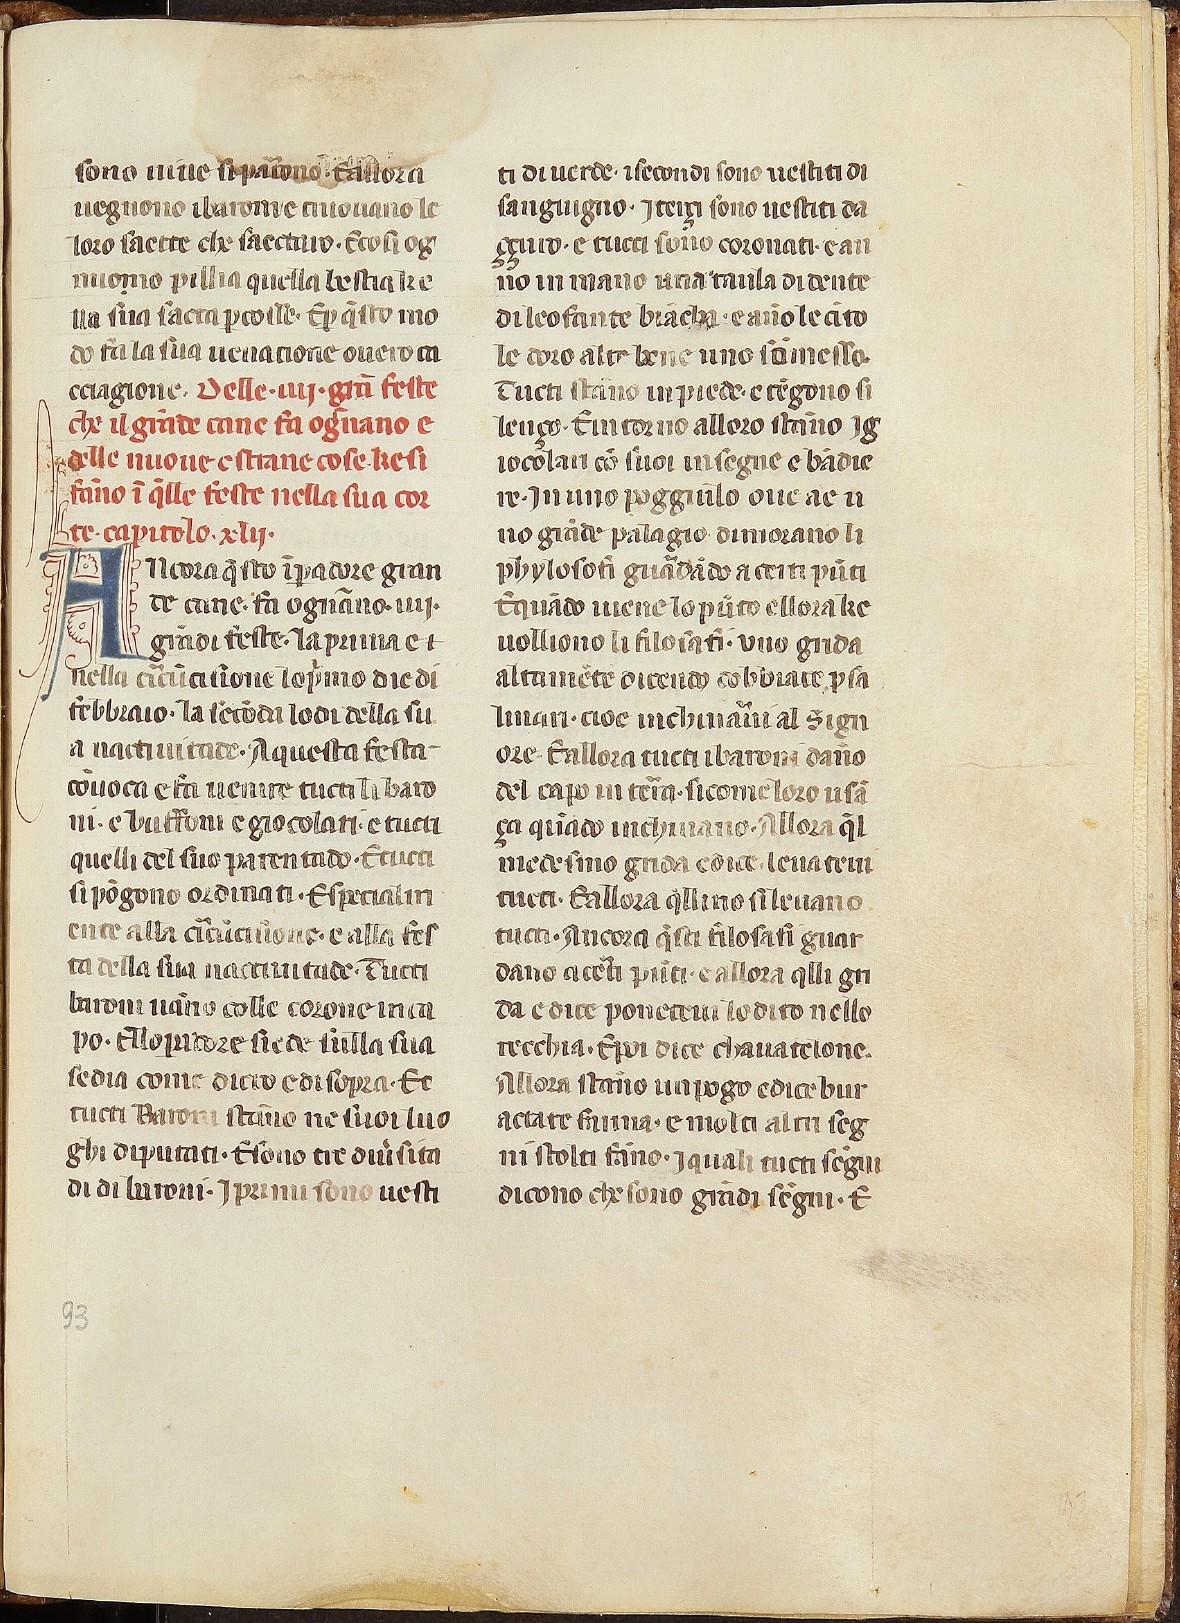 sono uiue si partono. Eallora
uegnono ibaroni e truouano le
loro saette che saectaro. Ecosi og
nuomo pillia quella bestia ke
lla sua saeta p̄cosse. Ep q̄sto mo
do fa la sua uenatione ouero ca
cciagione. Delle .iiij. grā feste
che il grāde cane fa ogn̄ano e
delle nuoue e strane cose. ke si
fāno ī q̄lle feste nella sua cor
te. capitolo. xlij.
ANcora q̄sto īpadore gran
de cane. fa ognāno .iiij.
grādi feste. la prima e t
nella circūcisione lo p̄mo die di
febbraio. la secōda lo di della su
a nactiuitade. A questa festa
cōuoca e fa uenire tucti li baro
ni. e buffoni e giocolari. e tucti
quelli del suo parentado. E tucti
si pōgono ordinati. Especialm
ente alla circūcisione. e alla fes
ta della sua nactiuitade. Tucti
baroni uāno colle corone in ca
po. Ello īpadore siede sulla sua
sedia come dicto e di sopra. Et
tucti Baroni stāno ne suoi luo
ghi diputati. E sono tre diu̓sita
di di baroni. I primi sono uesti
ti di uerde. i secondi sono uestiti di
sanguigno. I terçi sono uestiti da
ççuro. e tucti sono coronati. e an
no in mano una taula di dente
di leofante biācha. e āno le cīto
le doro alte bene uno sōmesso.
Tucti stāno in piede. e tēgono si
lenço. E in torno alloro stāno Ig
iocolari cō suoi insegne e bādie
re. In uno poggiuolo oue ae u
no grāde palagio. dimorano li
phylosofi guardādo a certi pūti
E quādo uiene lo pūto ellora ke
uolliono li filosafi. uno grida
altamēte dicendo cobbiate p sa
lmari. cioe inchinateui al Sign
ore. E allora tucti i baroni dāno
del capo in terra. si come loro usā
ça quādo inchinano. Allora q̄l
medesmo grida e dice. leuateui
tucti. E allora q̄llino si leuano
tucti. Ancora q̄sti filosafi guar
dano a certi pūti. e allora q̄lli gri
da e dice poneteui lo dito nello
recchia. E poi dice chauatelone.
Allora stāno un pogo e dice bur
actate farina. e molti altri seg
ni stolti fāno. I quali tucti segni
dicono che sono grādi sēgni. E
93